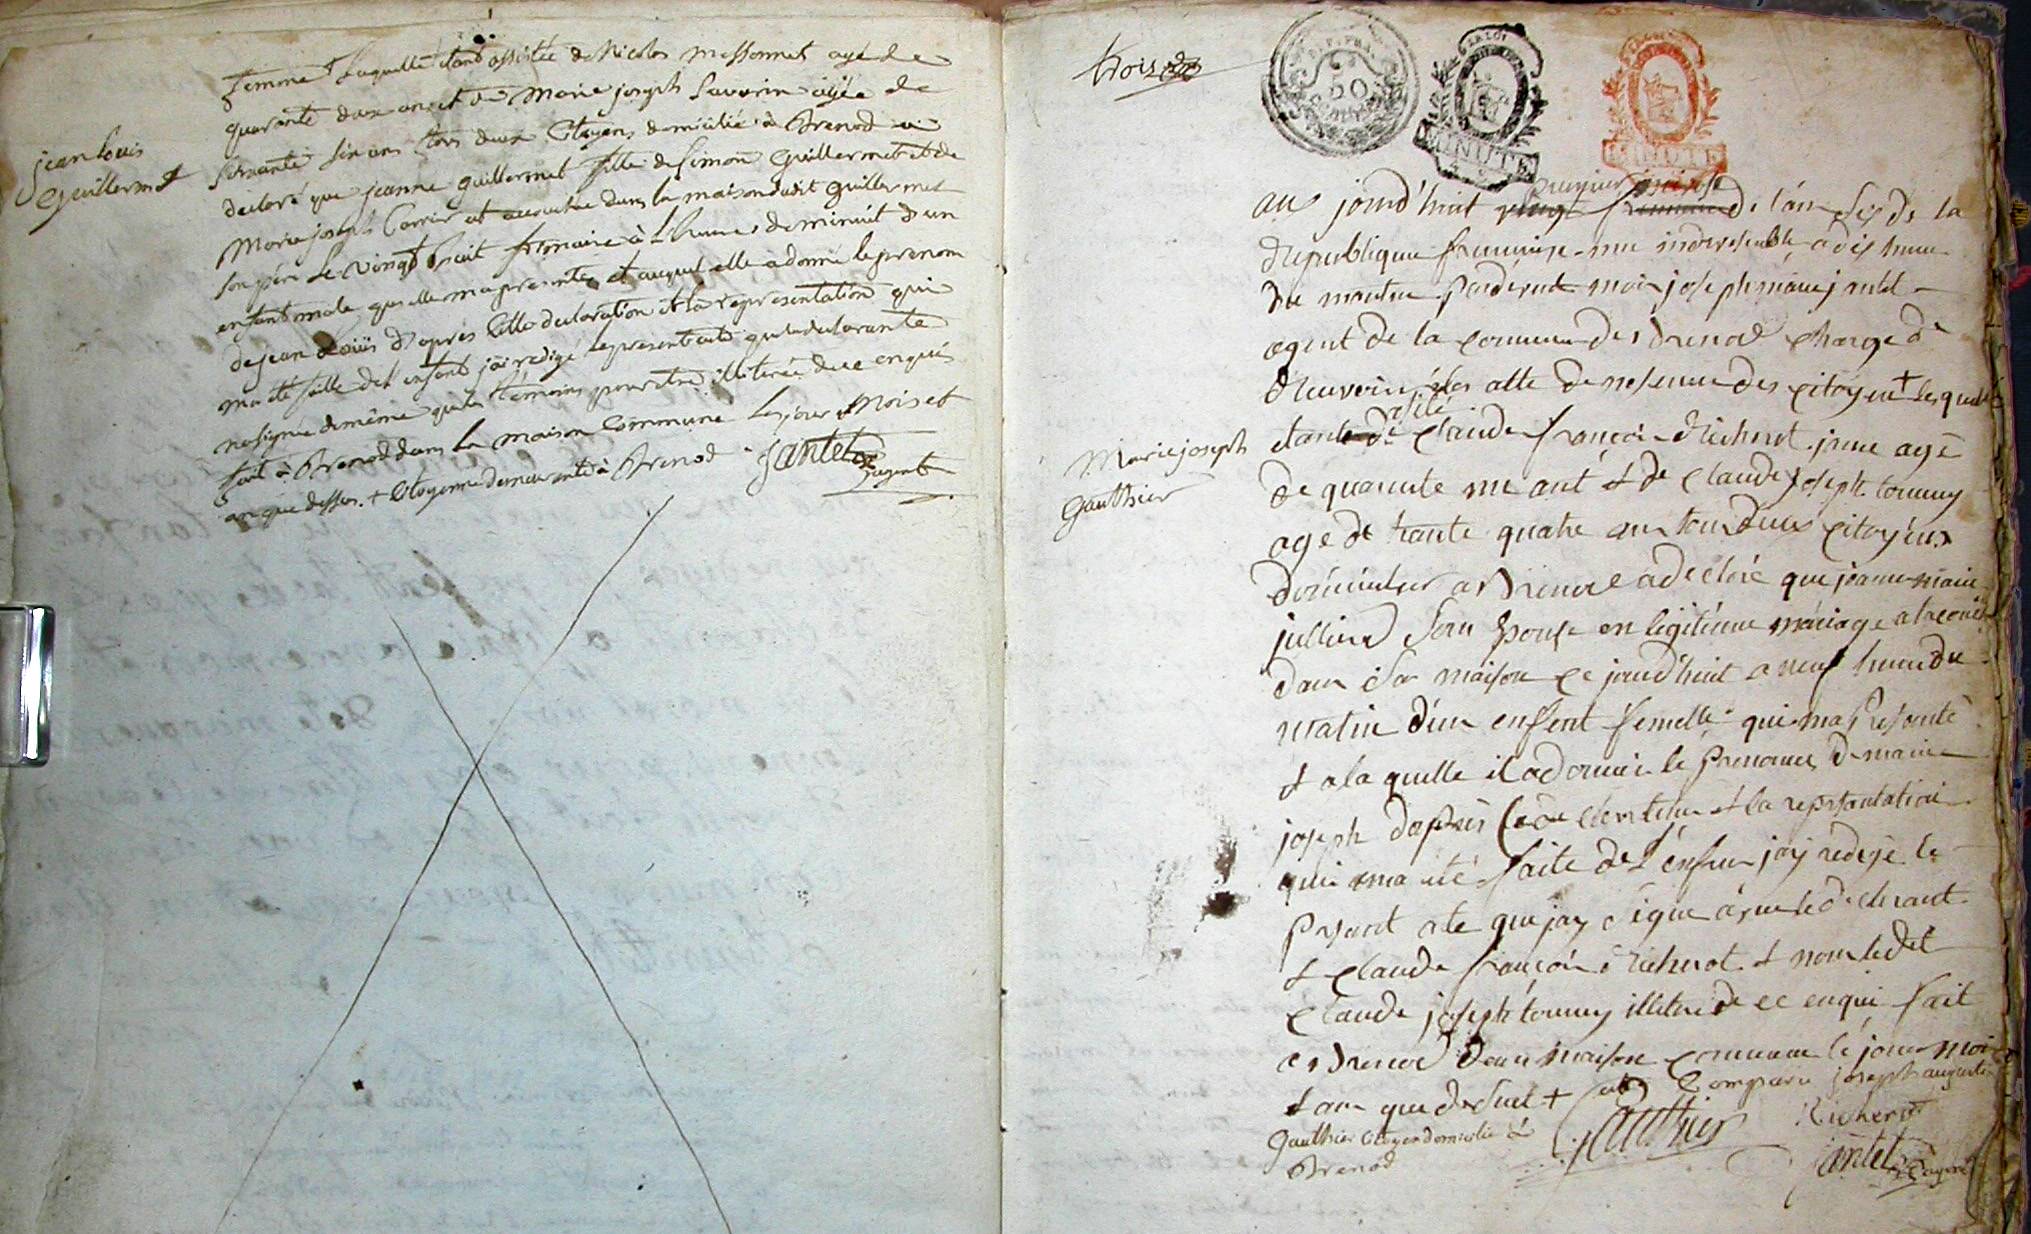 femme laquelle étant assistée de Nicolas messonnet agé de
quarante deux ans et de Marie joseph Savarin agée de
soixante six ans tous deux Citoyens domicilié à Brenod a
jean louis
guillermet
declaré que jeanne guillermet fille de Simon Guillermet et de
Marie joseph Carrier est accouchée dans la maison dudit guillermet
son père le vingt huit frimaire à l'heure de minuit d'un
enfant male quelle ma presenté et auquel elle a donné le prenom
de jean Louis d'apres cette declaration et la representation qui
ma été faitte de l'enfant jai redigé le present acte que la declarante
na signé de même que les témoins pour etre illiterée de ce enquis
fait à Brenod dans la maison Commune les jour Mois et
an que dessus. + Citoyenne demeurante à Brenod. jantet
agent
trois
premier nivose
aus jourd'huit vingt frimaire de l'an six de la
Republique francaise une indivisible a dix heure
du matin pardevent moi joseph marie jantet
agent de la commune de Brenod charge de
Recevoir les atte de nesence des citoyen + lesquel
assisté
Marie joseph
Gauthier
étant de Claude francois Richerot jeune agé
de quarente un ant & de Claude joseph tournuy
age de trante quatre ans tous deux citoyens
domicilier a Brenod a declaré que jeanne marie
jullierd son Epouse en legitieme mariage a lacouché
dans sa maison ce jourd'huit a neuf heure du
matin d'un enfent femelle qui ma Presanté
& a la quelle il adonnér le Prenoms de marie
joseph dapres la declaration & la represantation
qui ma eté faite de l'enfen jay redigé le
Presant ate que jay signé avec le declarant
& Claude francois Richerot & non ledit
Claude joseph tournuy illitere de ce enqui fait
a Brenod dans maison commune le jour moi
& an que desuet + Compari joseph augustin
Gauthier Citoyen domicilié à
Brenod
Gauthier
Richerot
jantet
agent